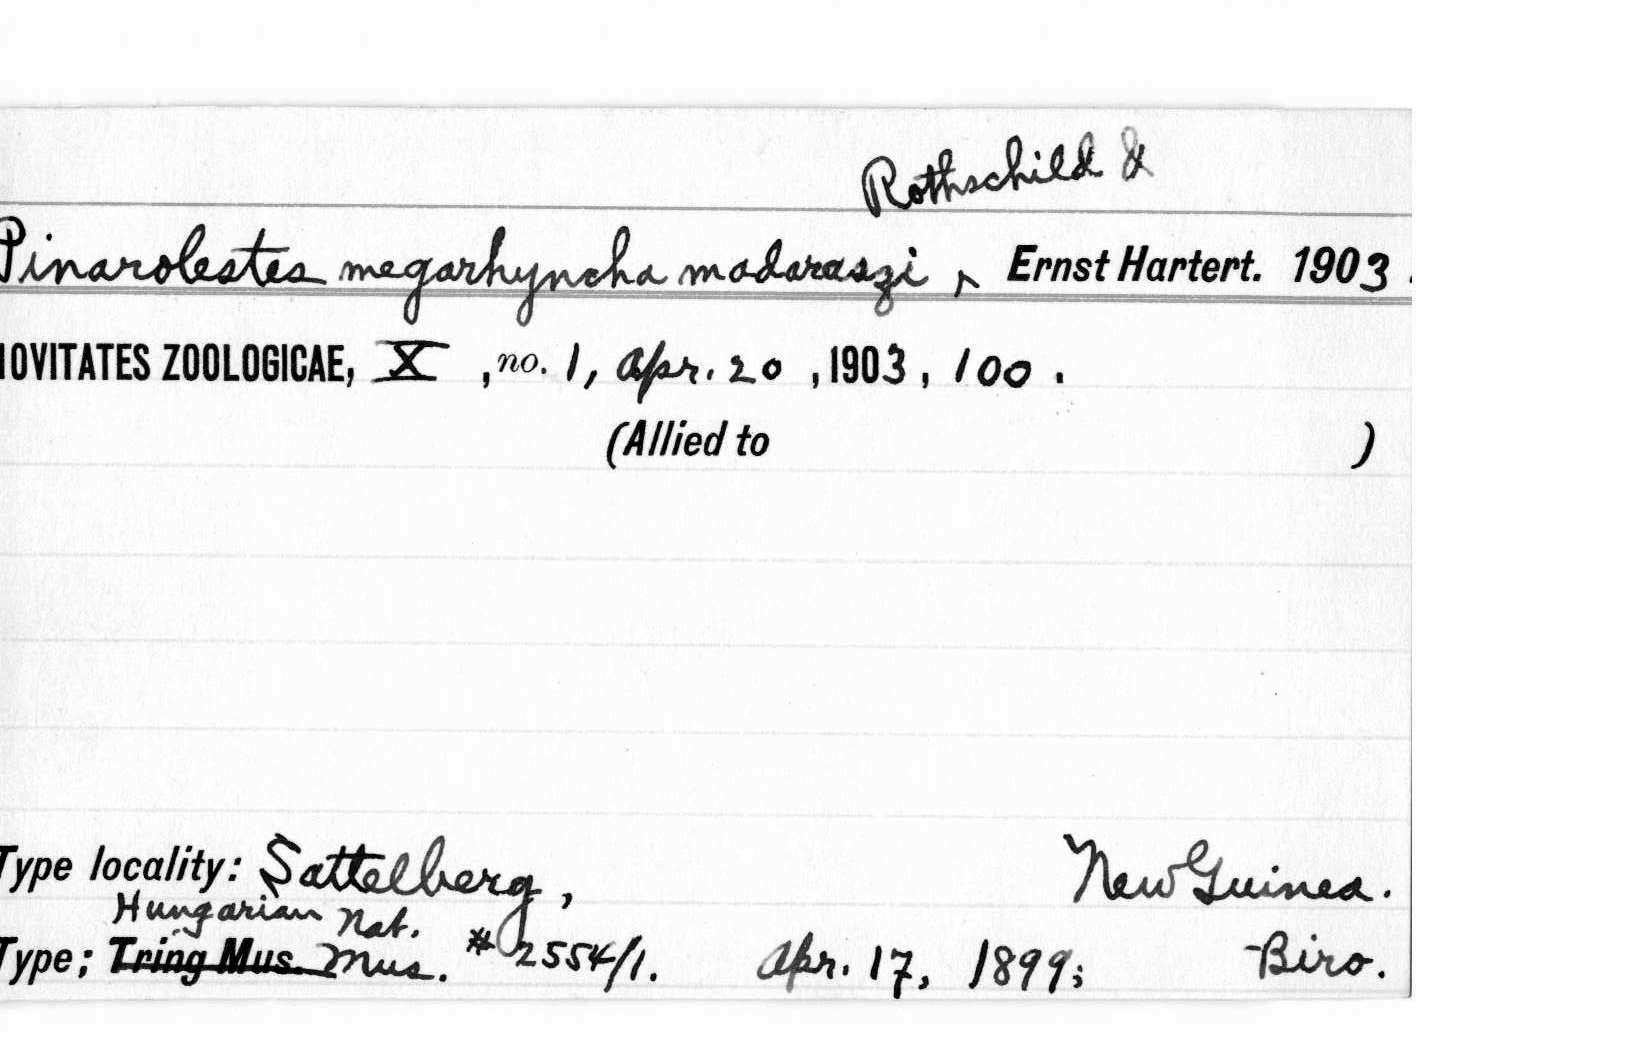 Rothschild &
Pinarolestes megarhyncha madaraszi ^ Ernst Hartert. 1903.
NOVITATES ZOOLOGICAE, X, no. 1, Apr. 20, 1903, 100.
(Allied to )
Type locality: Sattelberg, New Guinea.
Hungarian Nat.
Type; Tring Mus. Mus. #2554/1. Apr. 17, 1899; Biro.